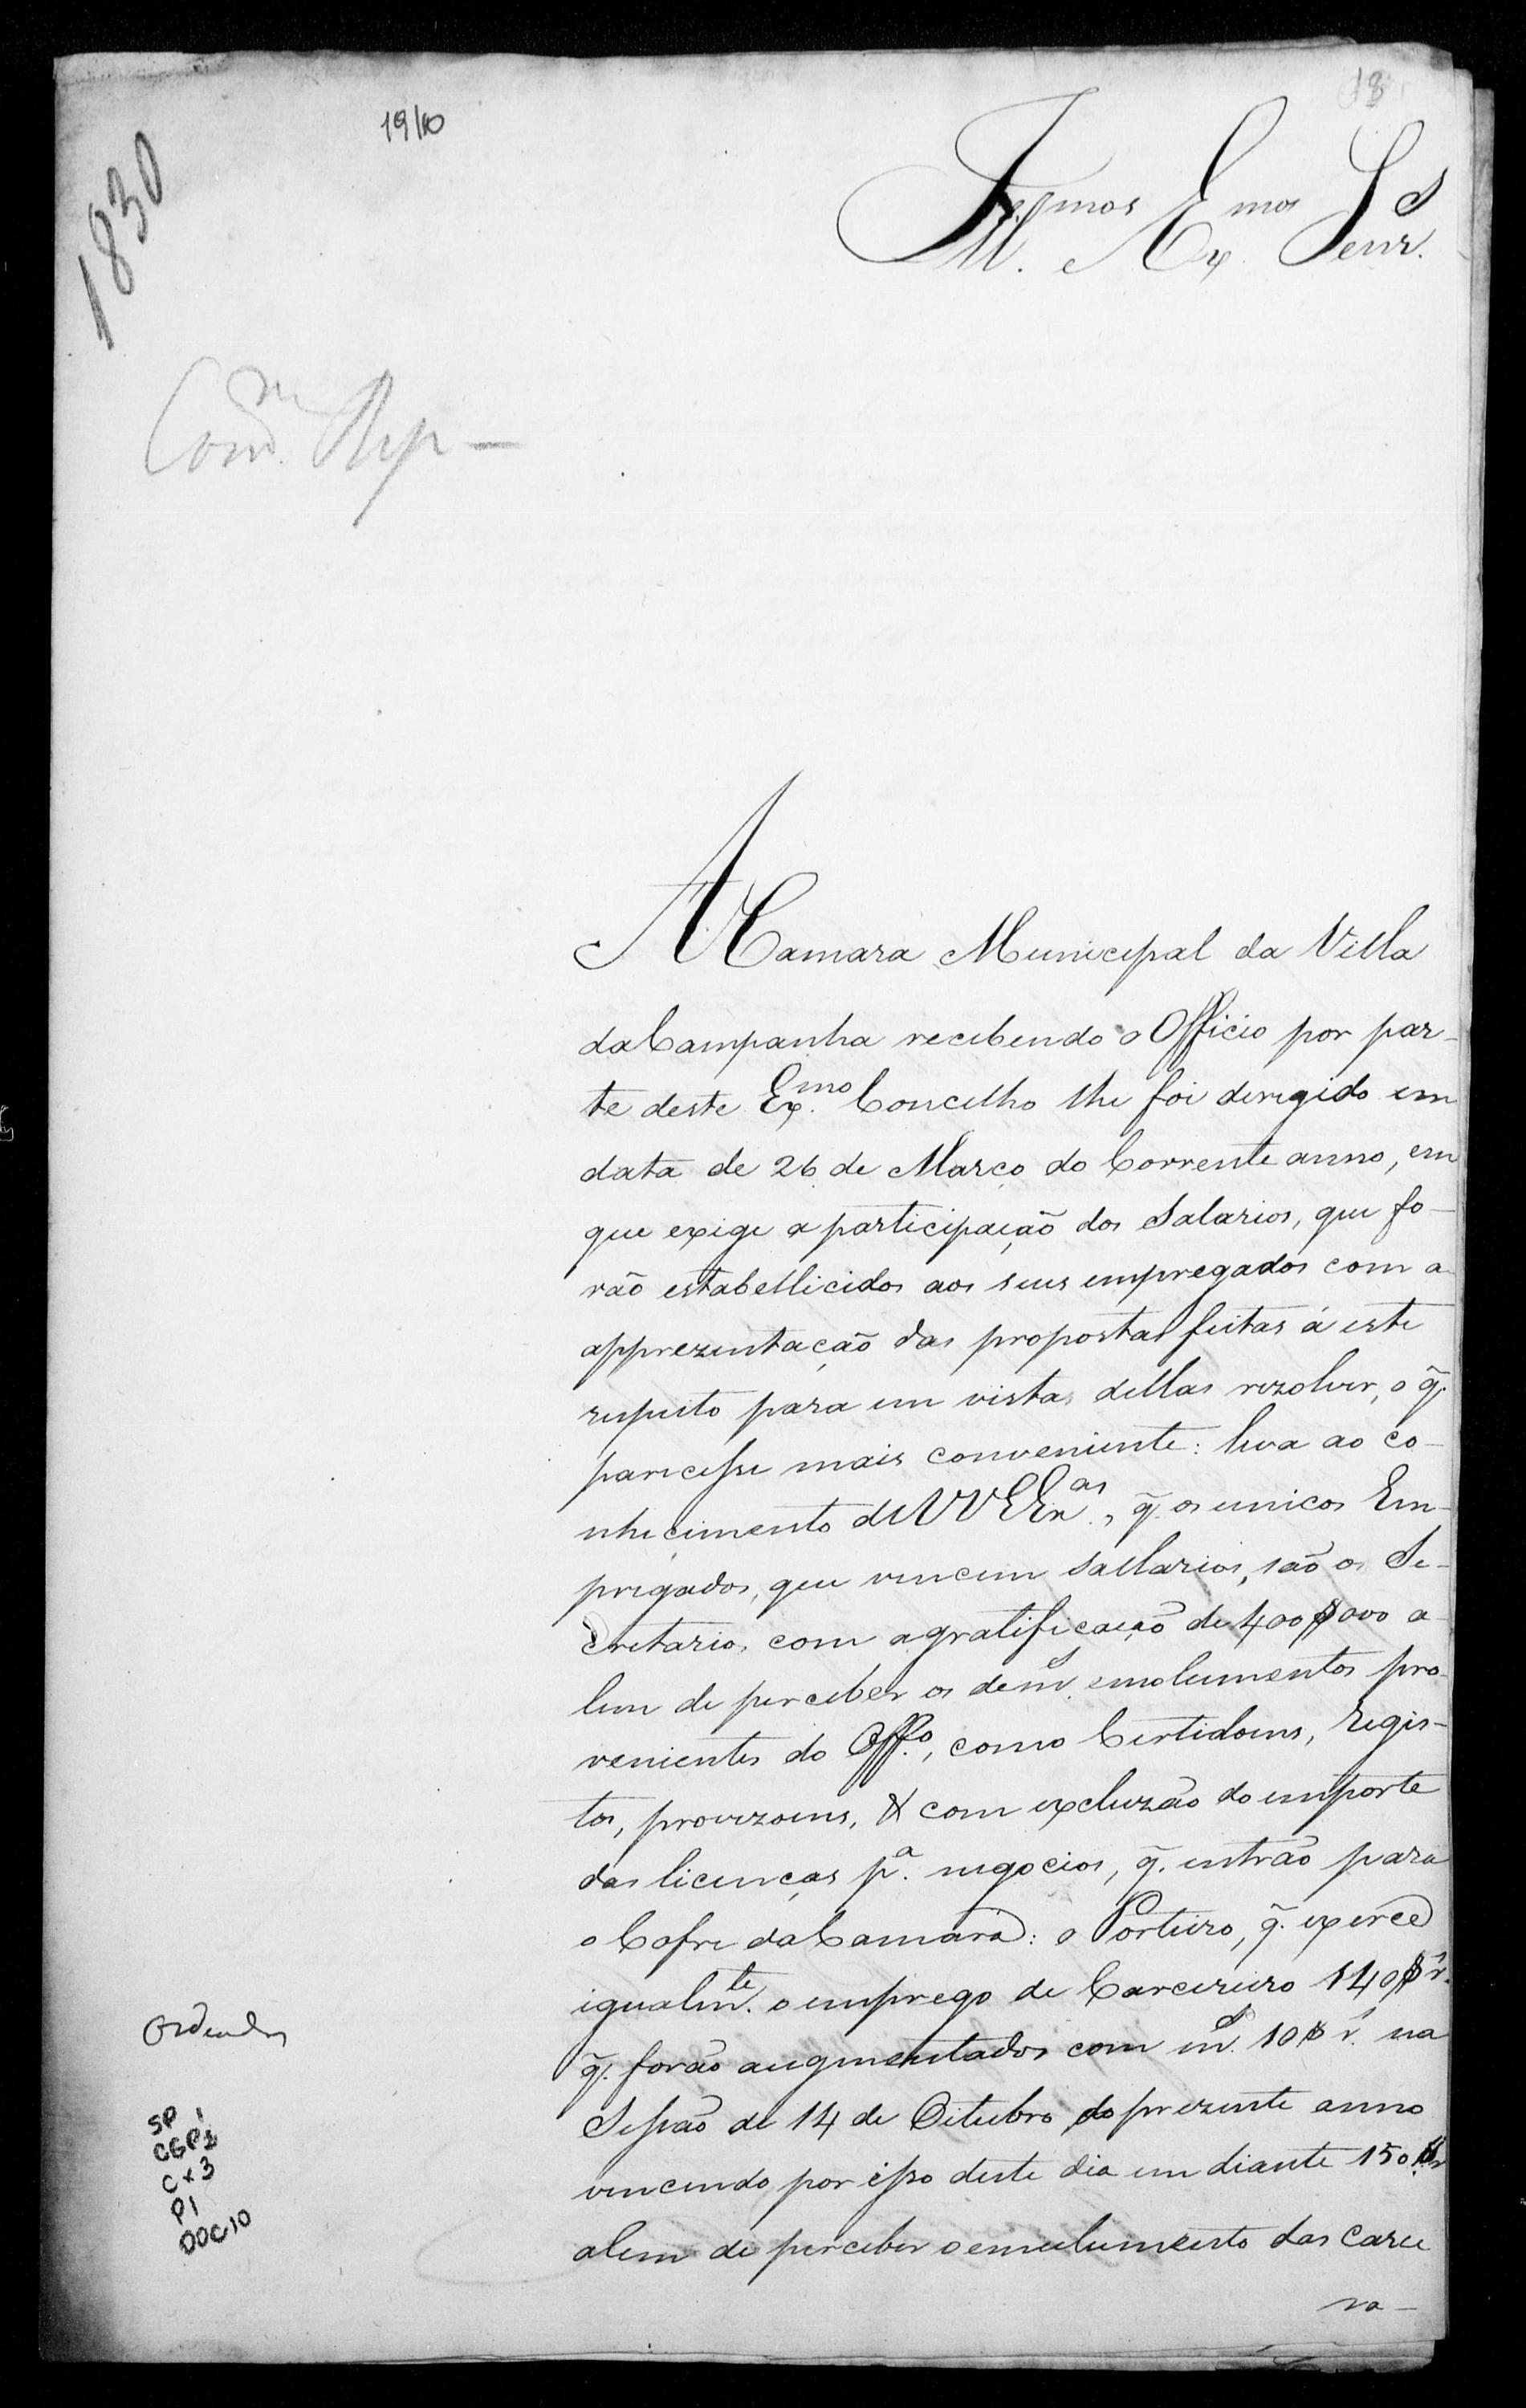 18
19/10
1830
Ill.mos e Ex.mos Senr.s
Com.m Rep –
A Camara Municipal da Villa
da Campanha recebendo o Officio por par-
te deste Ex.mo Concelho lhe foi derigido em
data de 26 de Março do Corrente anno, em
que exige a participação dos Salarios, que fo-
rão estabellicidos aos seus empregados com a
apprezentação das propostas feitas á este
respeito para em vista dellas rezolver, o q̃.
parecesse mais conveniente: leva ao co-
nhecimento de VVEEx.as, q̃. os unicos Em-
pregados, que vencem Sallarios, são os Se-
cretario, com a gratificação de 400$000 a-
lem de perceber os dem.s emolumentos pro-
venientes do Off.o, como Certidoens, Regis-
tos, provizoens, & com excluzão do emporte
das licenças p.a negocios, q̃. entrão para
o Cofre da Camara: o Porteiro, q̃. exerce
igualm.te o emprego de Carcereiro 140$r.s
q̃. forão augmentados com m.s 10$r.s na
Sessão de 14 de Oitubro do prezente anno
vencendo por isso deste dia em diante 150$r.s
alem de perceber o emulumento das carce
ra-
Ordenados
SP 1
CGP1
Cx3
P1
DOC10